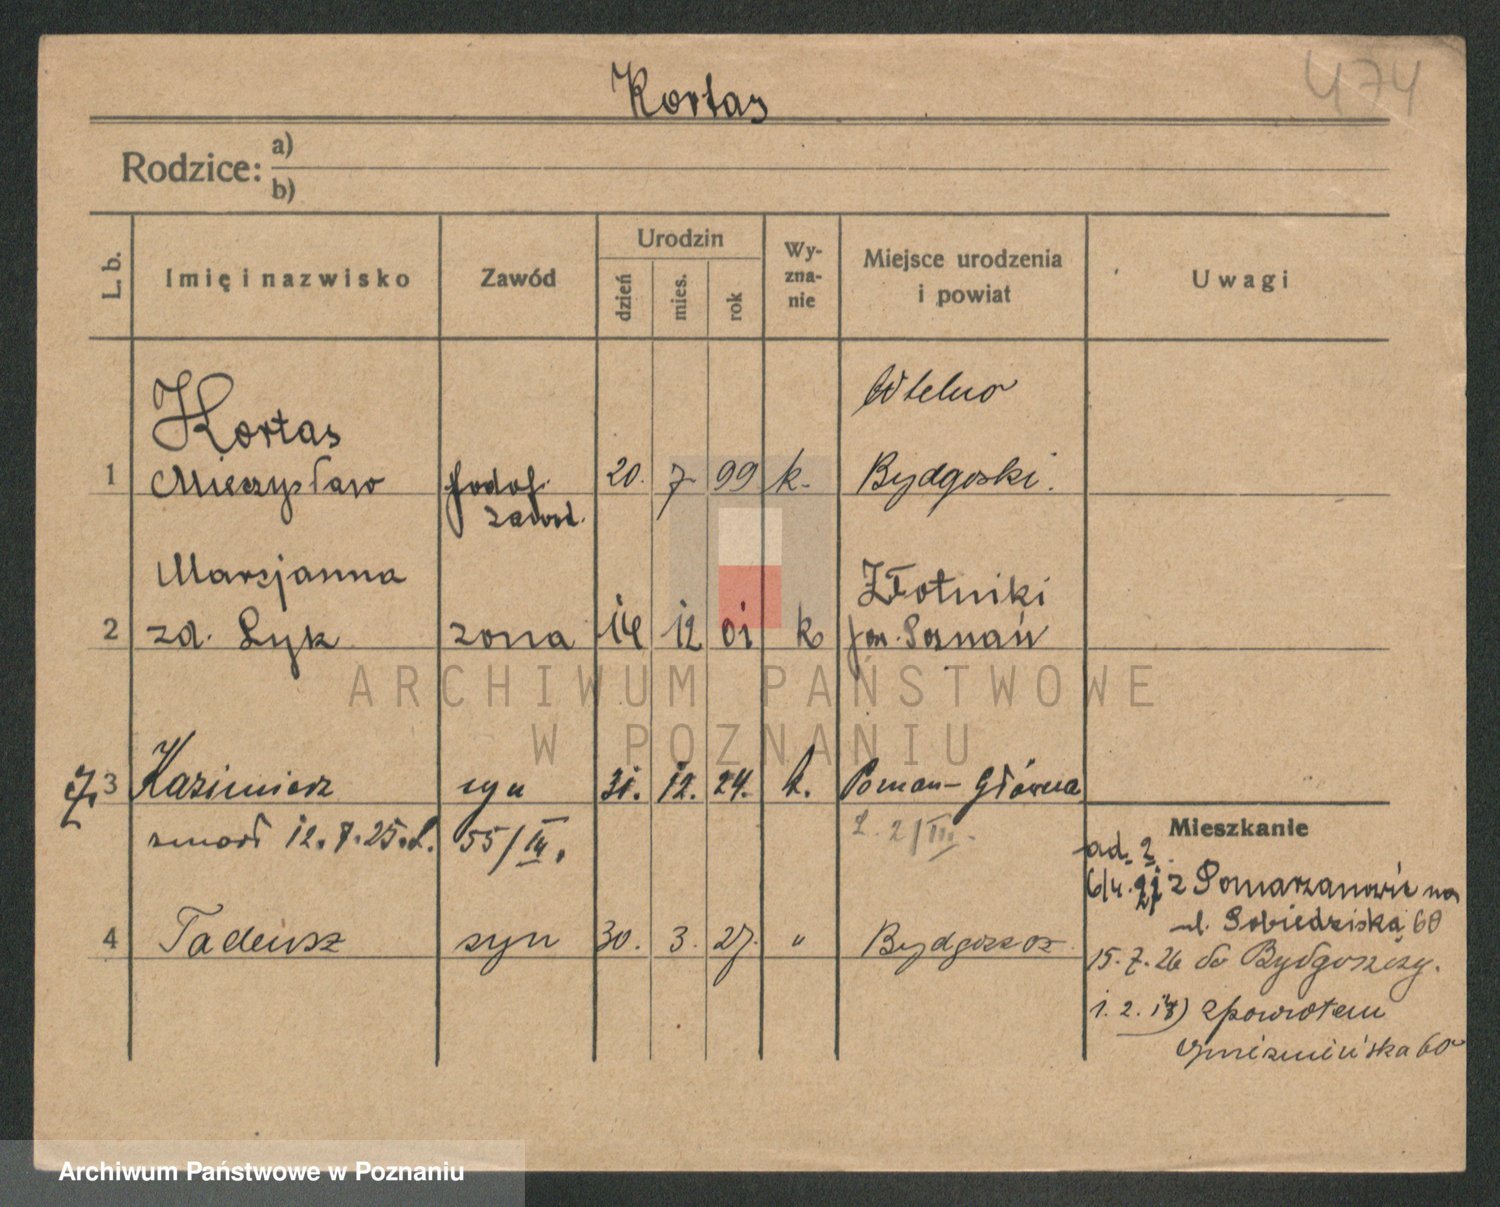 474
Kortas
Rodzice: a)
b)
L. b.
Imię i nazwisko
Zawód
Urodzin
dzień
mies.
rok
Wy-
zna-
nie
Miejsce urodzenia
i powiat
Uwagi
Kortas
Wtelno
1 Mieczysław podof. 20. 7. 99 k. Bydgoski.
zawod.
Marcjanna Złotniki
2 zd. Łyk żona 14 12 01 k pow. Poznań
3 Kazimierz syn 31. 12. 24. k. Poznań-Główna
zmarł 12.7.25. 55/III. 2/III.
4 Tadeusz syn 30. 3. 27. " Bydgoszcz
Mieszkanie
ad. 2.
6/4. z Pomarzanowic na
ul. Sobiedziską 60
15.7.26 do Bydgoszczy.
1. 2. zpowrotem
Gnieźnieńska 60
ARCHIWUM PAŃSTWOWE
W POZNANIU
Archiwum Państwowe w Poznaniu